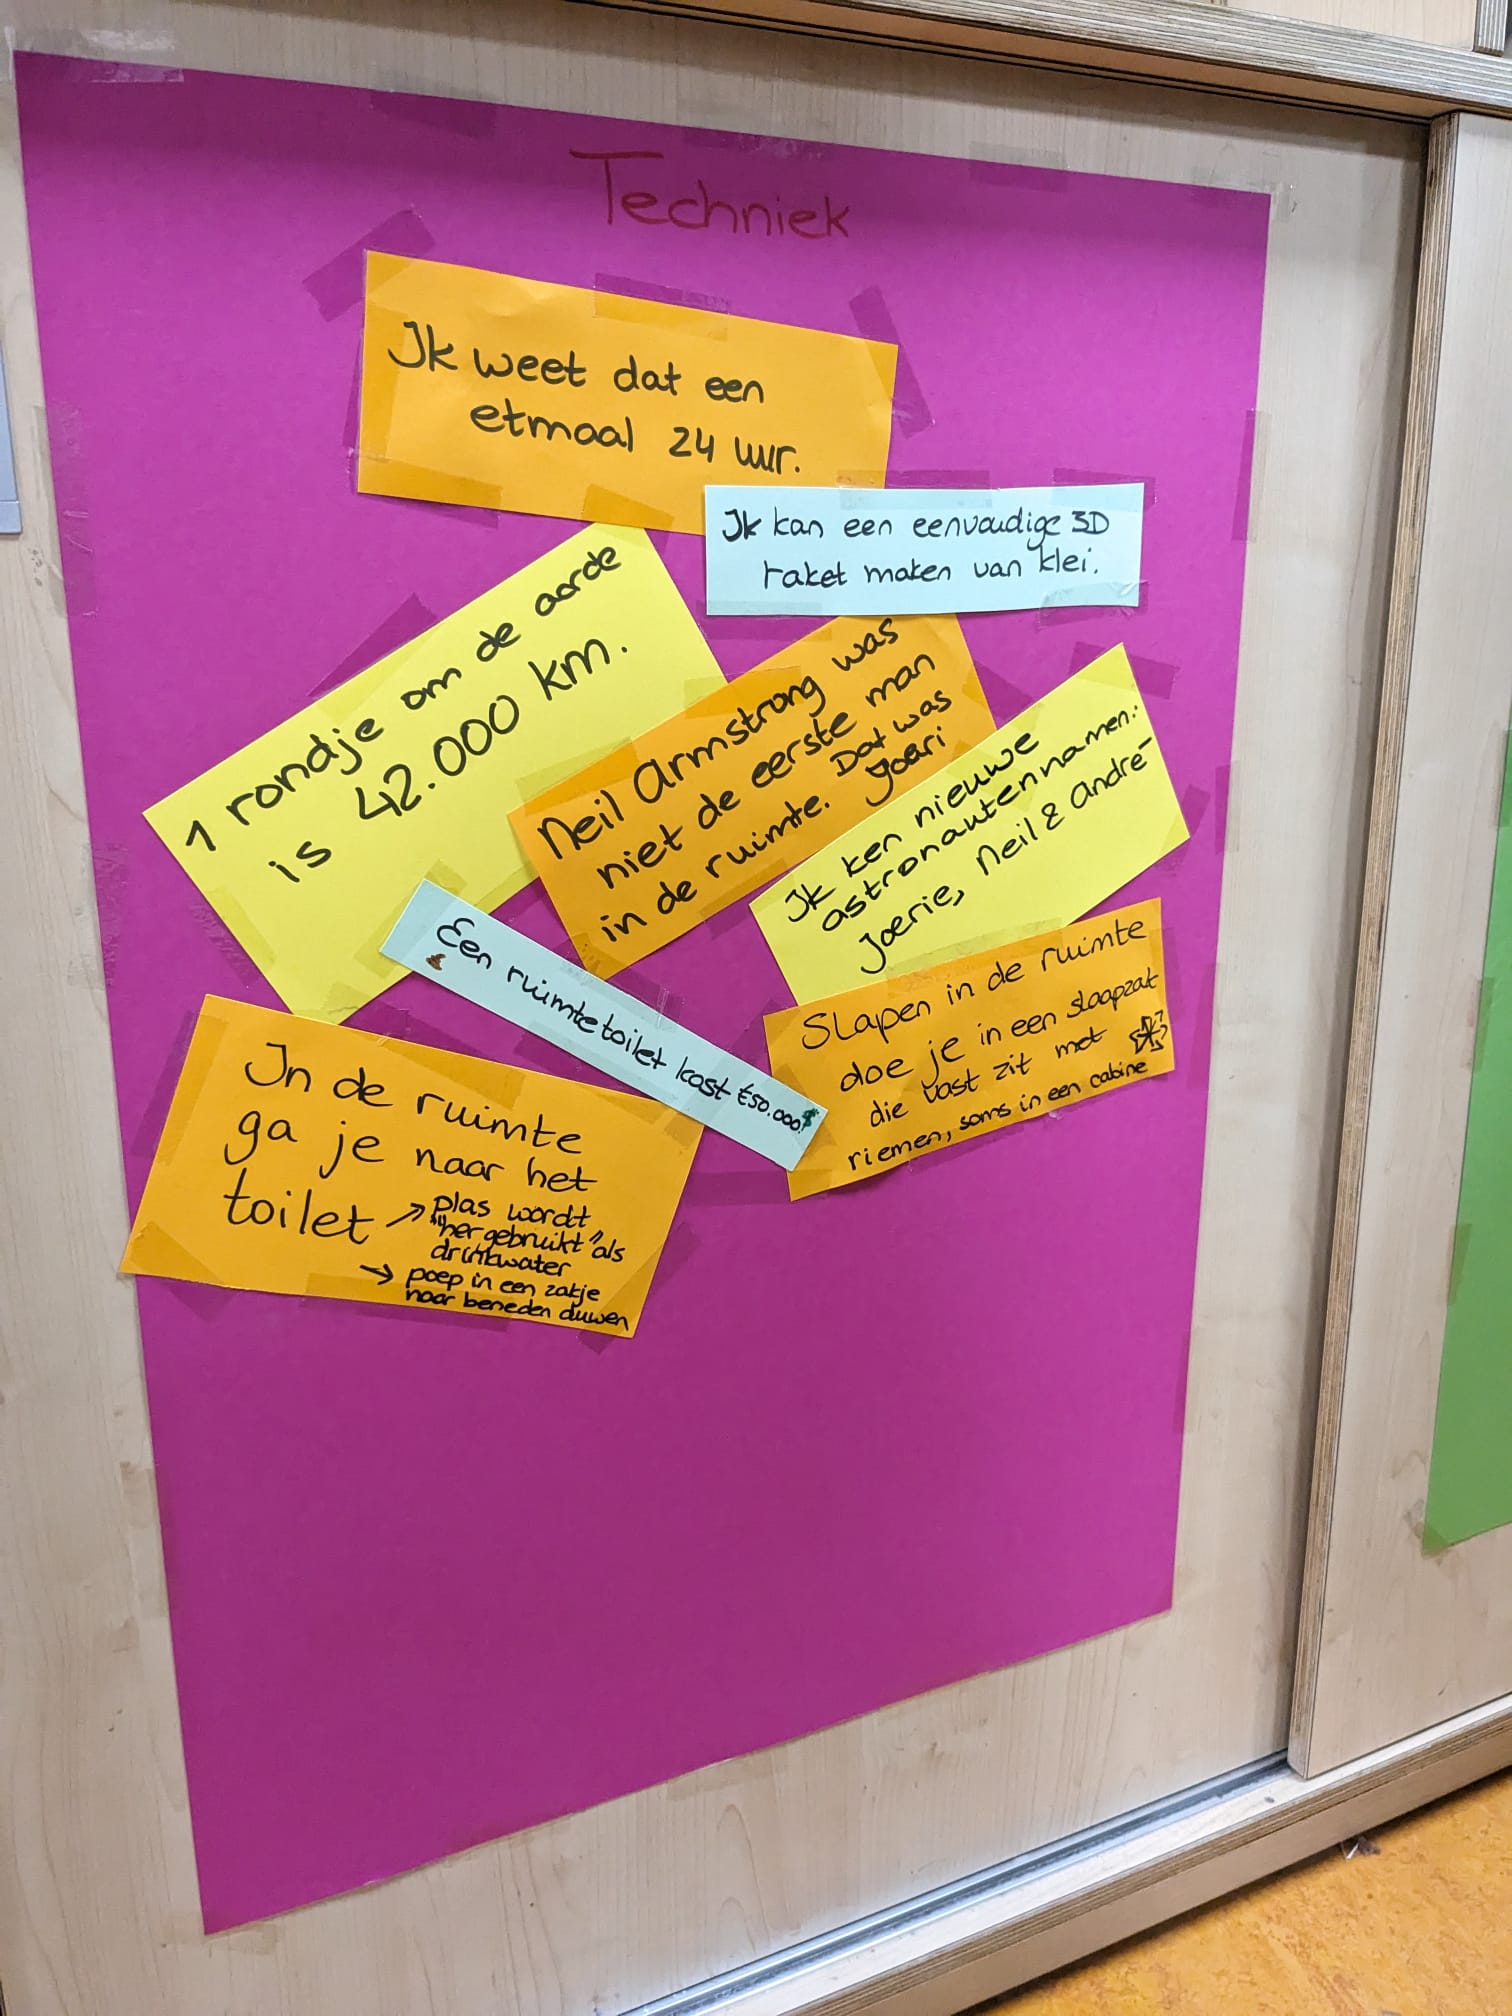 Techniek
Ik weet dat een
etmaal 24 uur.
Ik kan een eenvoudige 3D
raket maken van klei.
1 rondje om de aarde
is 42.000 km.
Neil Armstrong was
niet de eerste man
in de ruimte. Dat was
Joeri
Ik ken nieuwe
astronautennamen:
Joerie, Neil & André
Een ruimtetoilet kost €50.000!$
Slapen in de ruimte
doe je in een slaapzak
die vast zit met
riemen, soms in een cabine
In de ruimte
ga je naar het
toilet → plas wordt
"hergebruikt" als
drinkwater
→ poep in een zakje
naar beneden duwen